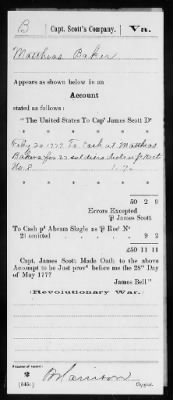 B | Capt. Scott's Company, | Va.
Matthias Baker
Appears as shown below in an
Account
stated as follows:
"The United States To Cap' James Scott Dr
Feby 20 1777 To Cash at Matthias
Bakers for 27 soldiers
No. 8
50 2 0
Errors Excepted
℘ James Scott
To Cash ℘ Abram Slagle as ℘ Rect No
omitted 9 2
£50 11 11
Capt. James Scott Made Oath to the above
Accompt to be Just prov'd before me the 28th Day
of May 1777
James Bell"
(Revolutionary War.)
Number of record:
2
(545c)
Copyist.